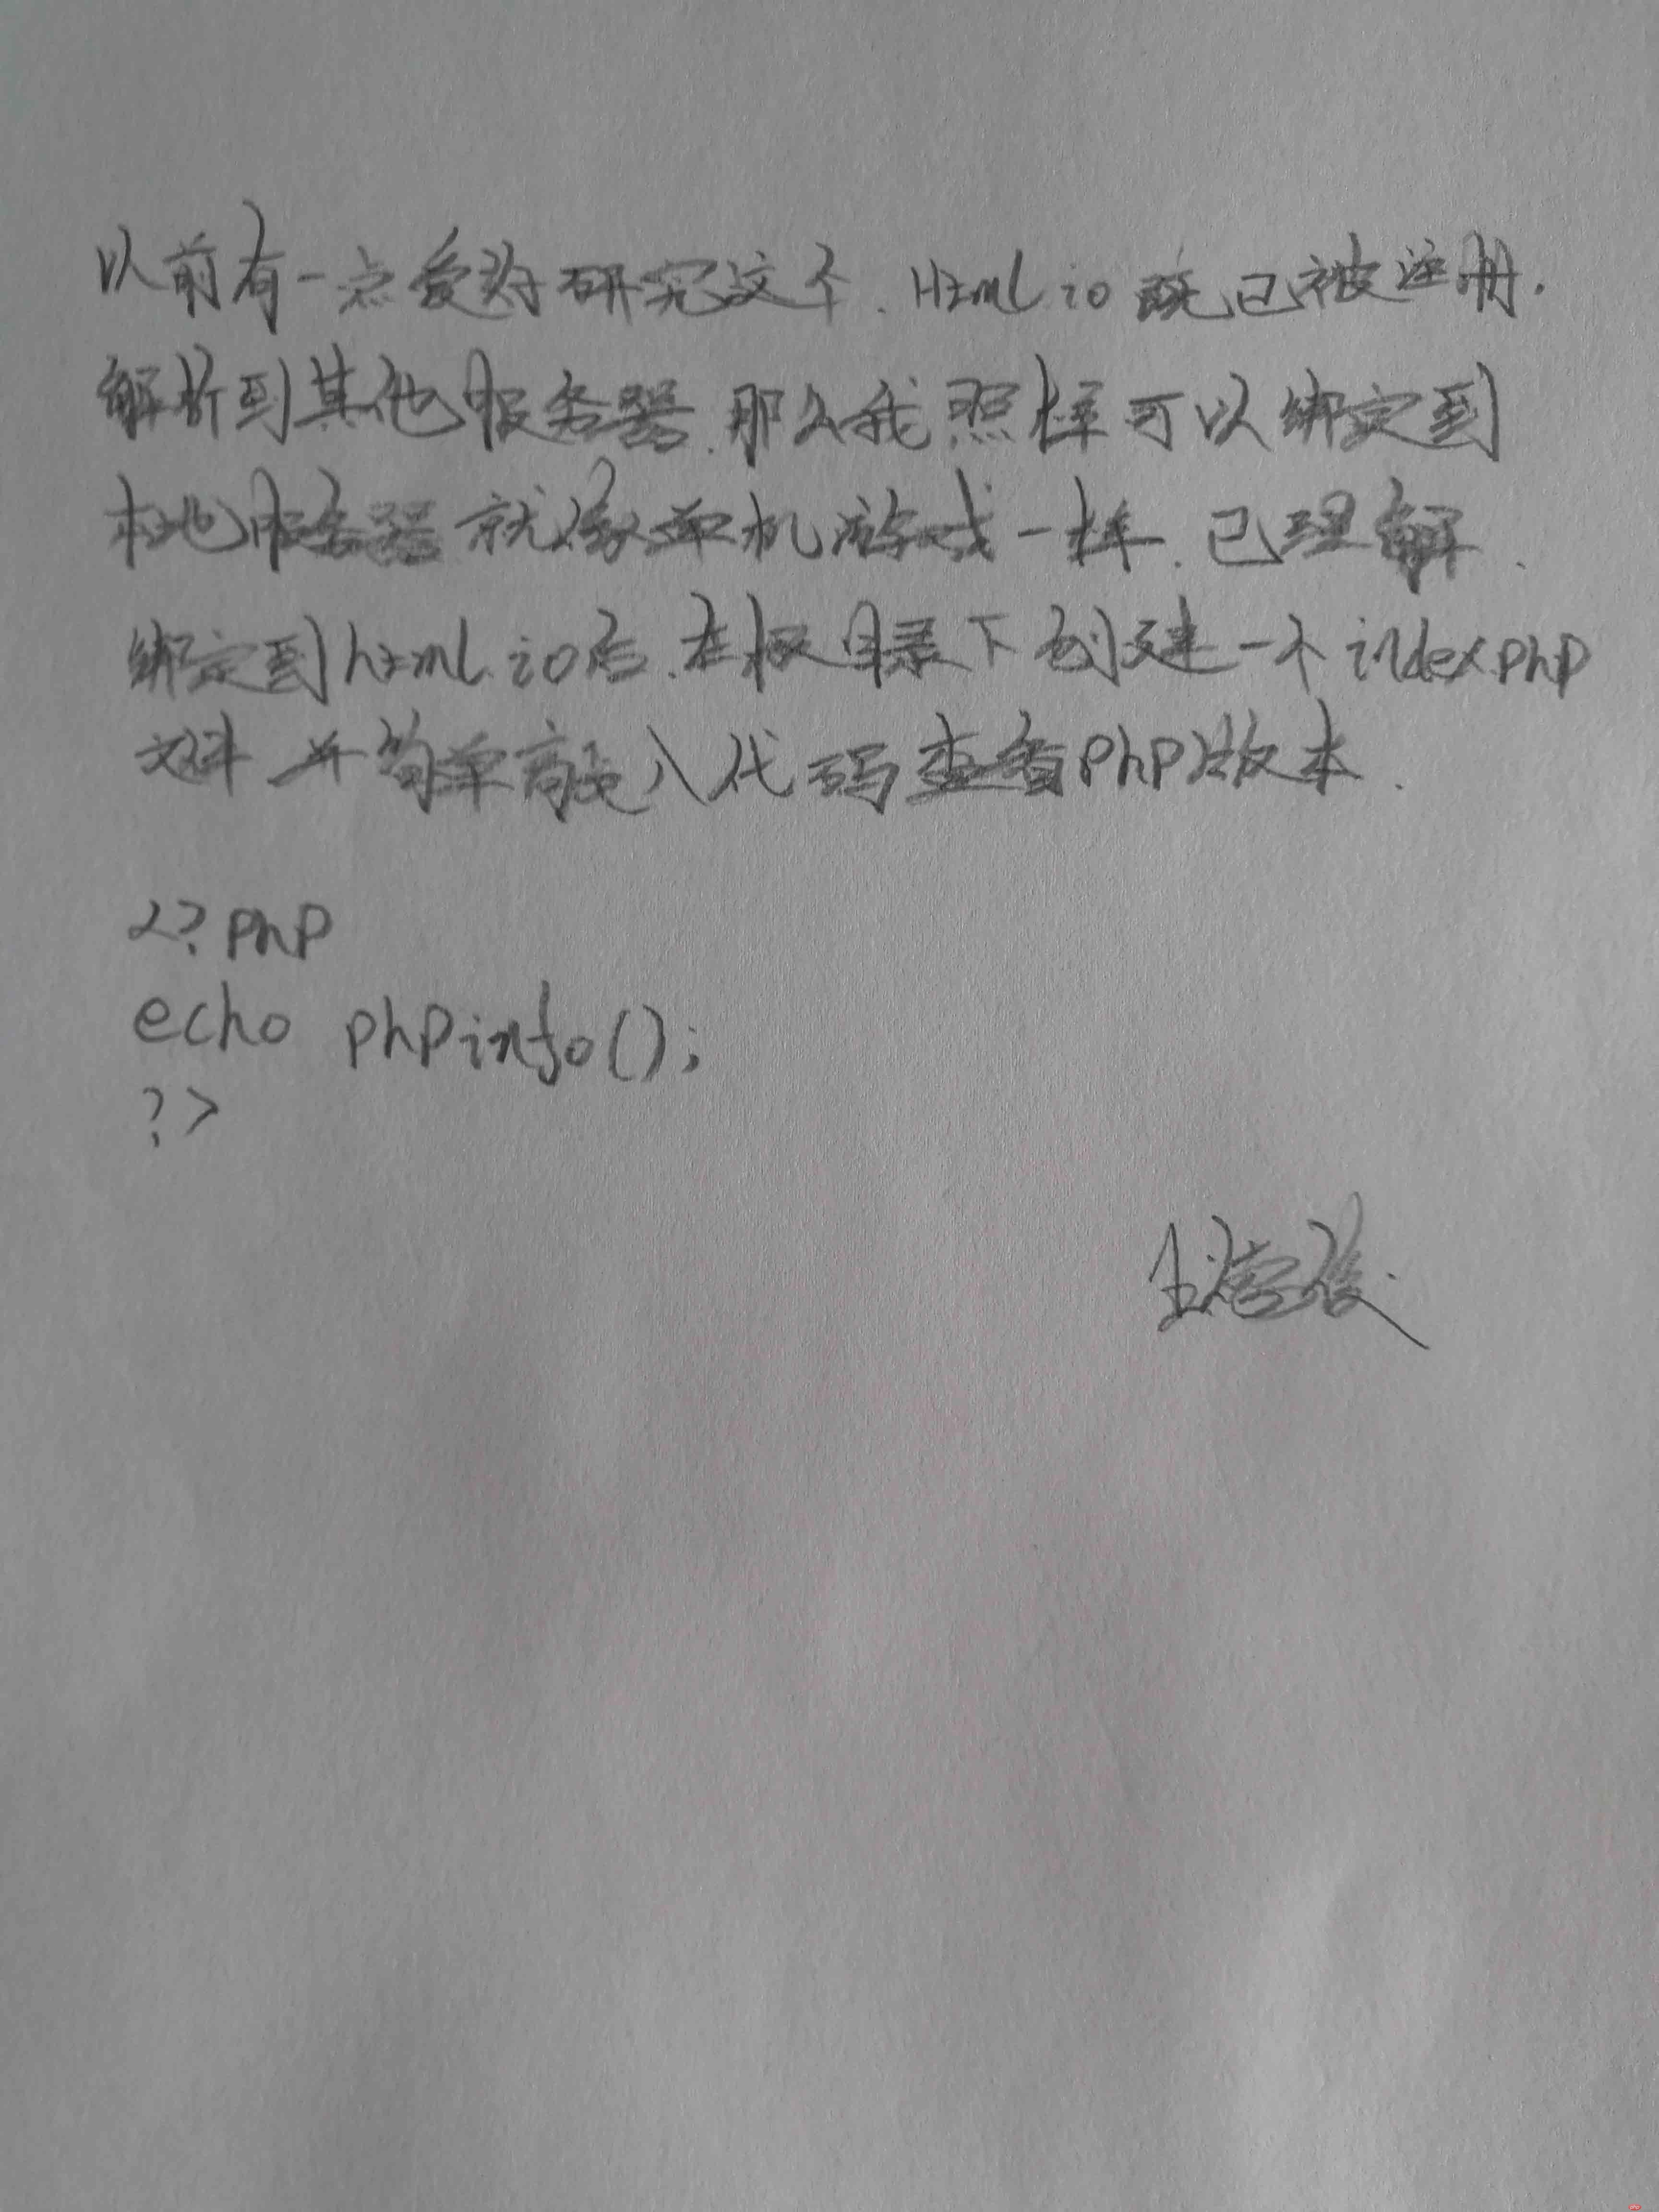 以前有一点爱好研究这个. Hzml.io 既已被注册.
解析到其他服务器.那么我照样可以绑定到
本地服务器就像单机游戏一样.已理解.
绑定到hzml.io后.在根目录下创建一个index.php
文件并简单敲入代码查看PhP版本.
<?PhP
echo phpinfo();
?>